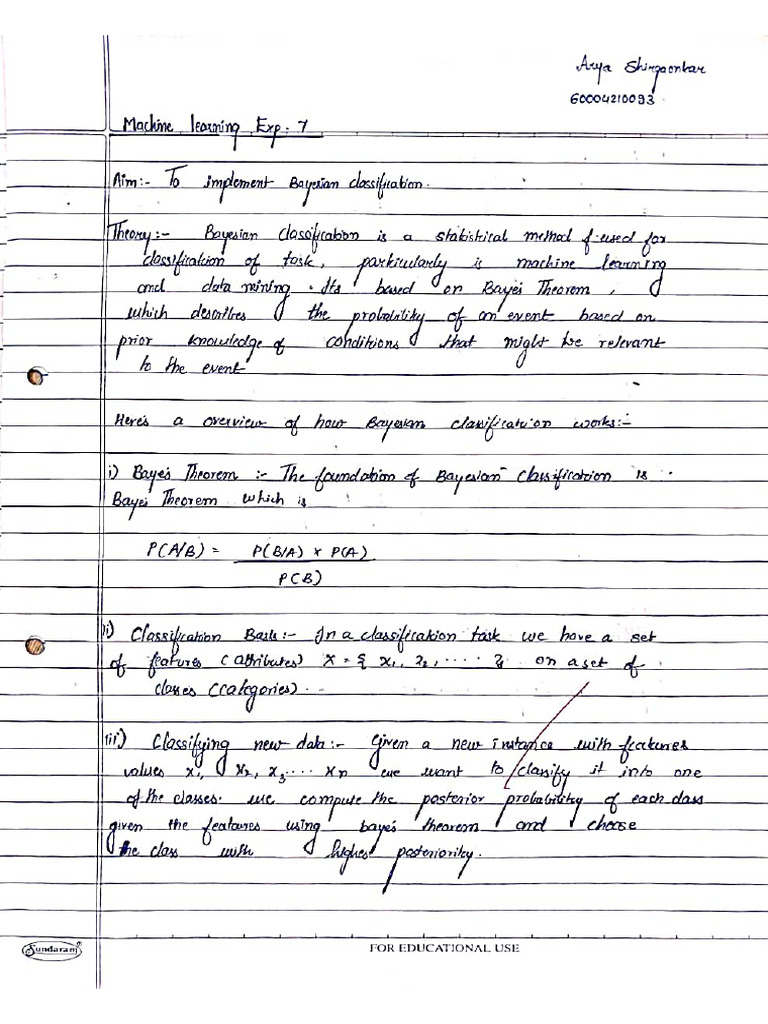 Arya Shirgaonkar
60004210093
Machine learning Exp. 7
Aim:- To implement Bayesian classification.
Theory:- Bayesian Classification is a statistical method f used for
classification of task, particularly is machine learning
and data mining. Its based on Baye's Theorem,
which describes the probability of an event based on
prior knowledge of conditions that might be relevant
to the event
Here's a overview of how Bayesian classification works:-
i) Baye's Theorem :- The foundation of Bayesian Classification is
Baye's Theorem which is
P(A/B) = P(B/A) × P(A)
P(B)
ii) Classification Basis:- In a classification task we have a set
of features (attributes) X = { x1, x2, ..... } on a set of
classes (categories).
iii) Classifying new data:- Given a new instance with features
values x1, x2, x3.... xn we want to classify it into one
of the classes. we compute the posterior probability of each class
given the features using baye's theorem and choose
the class with highest posteriority.
Sundaram
FOR EDUCATIONAL USE